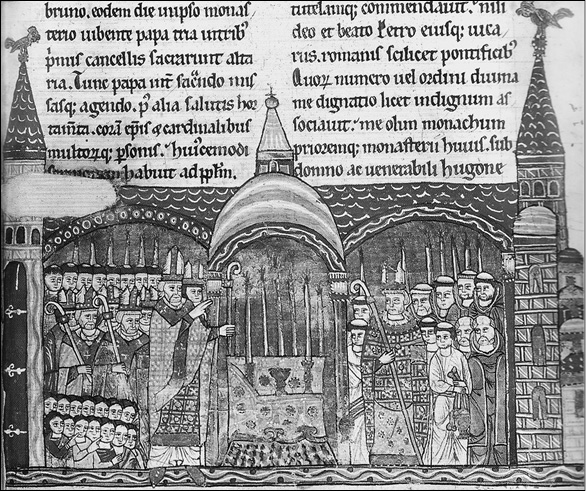 bruno. eodem die in ipso monas
terio iubente papa tria
primis cancellis sacrarunt alta
ria. Tunc papa int̄ sac̄ndo mis
sasq; agendo. p̄ alia salutis hor
tam̄ta. corā ep̄is & cardinalibus
multorq; p̄sonis. huiuscemodi
habuit ad
tutelamq; commendauit. nisi
deo et beato Petro eiusq; uica
riis. romanis scilicet pontificib'
Quoꝝ numero uel ordini diuina
me dignatio licet indignum as
sociauit. me olim monachum
prioremq; monasterii huius. sub
domno ac uenerabili hugone